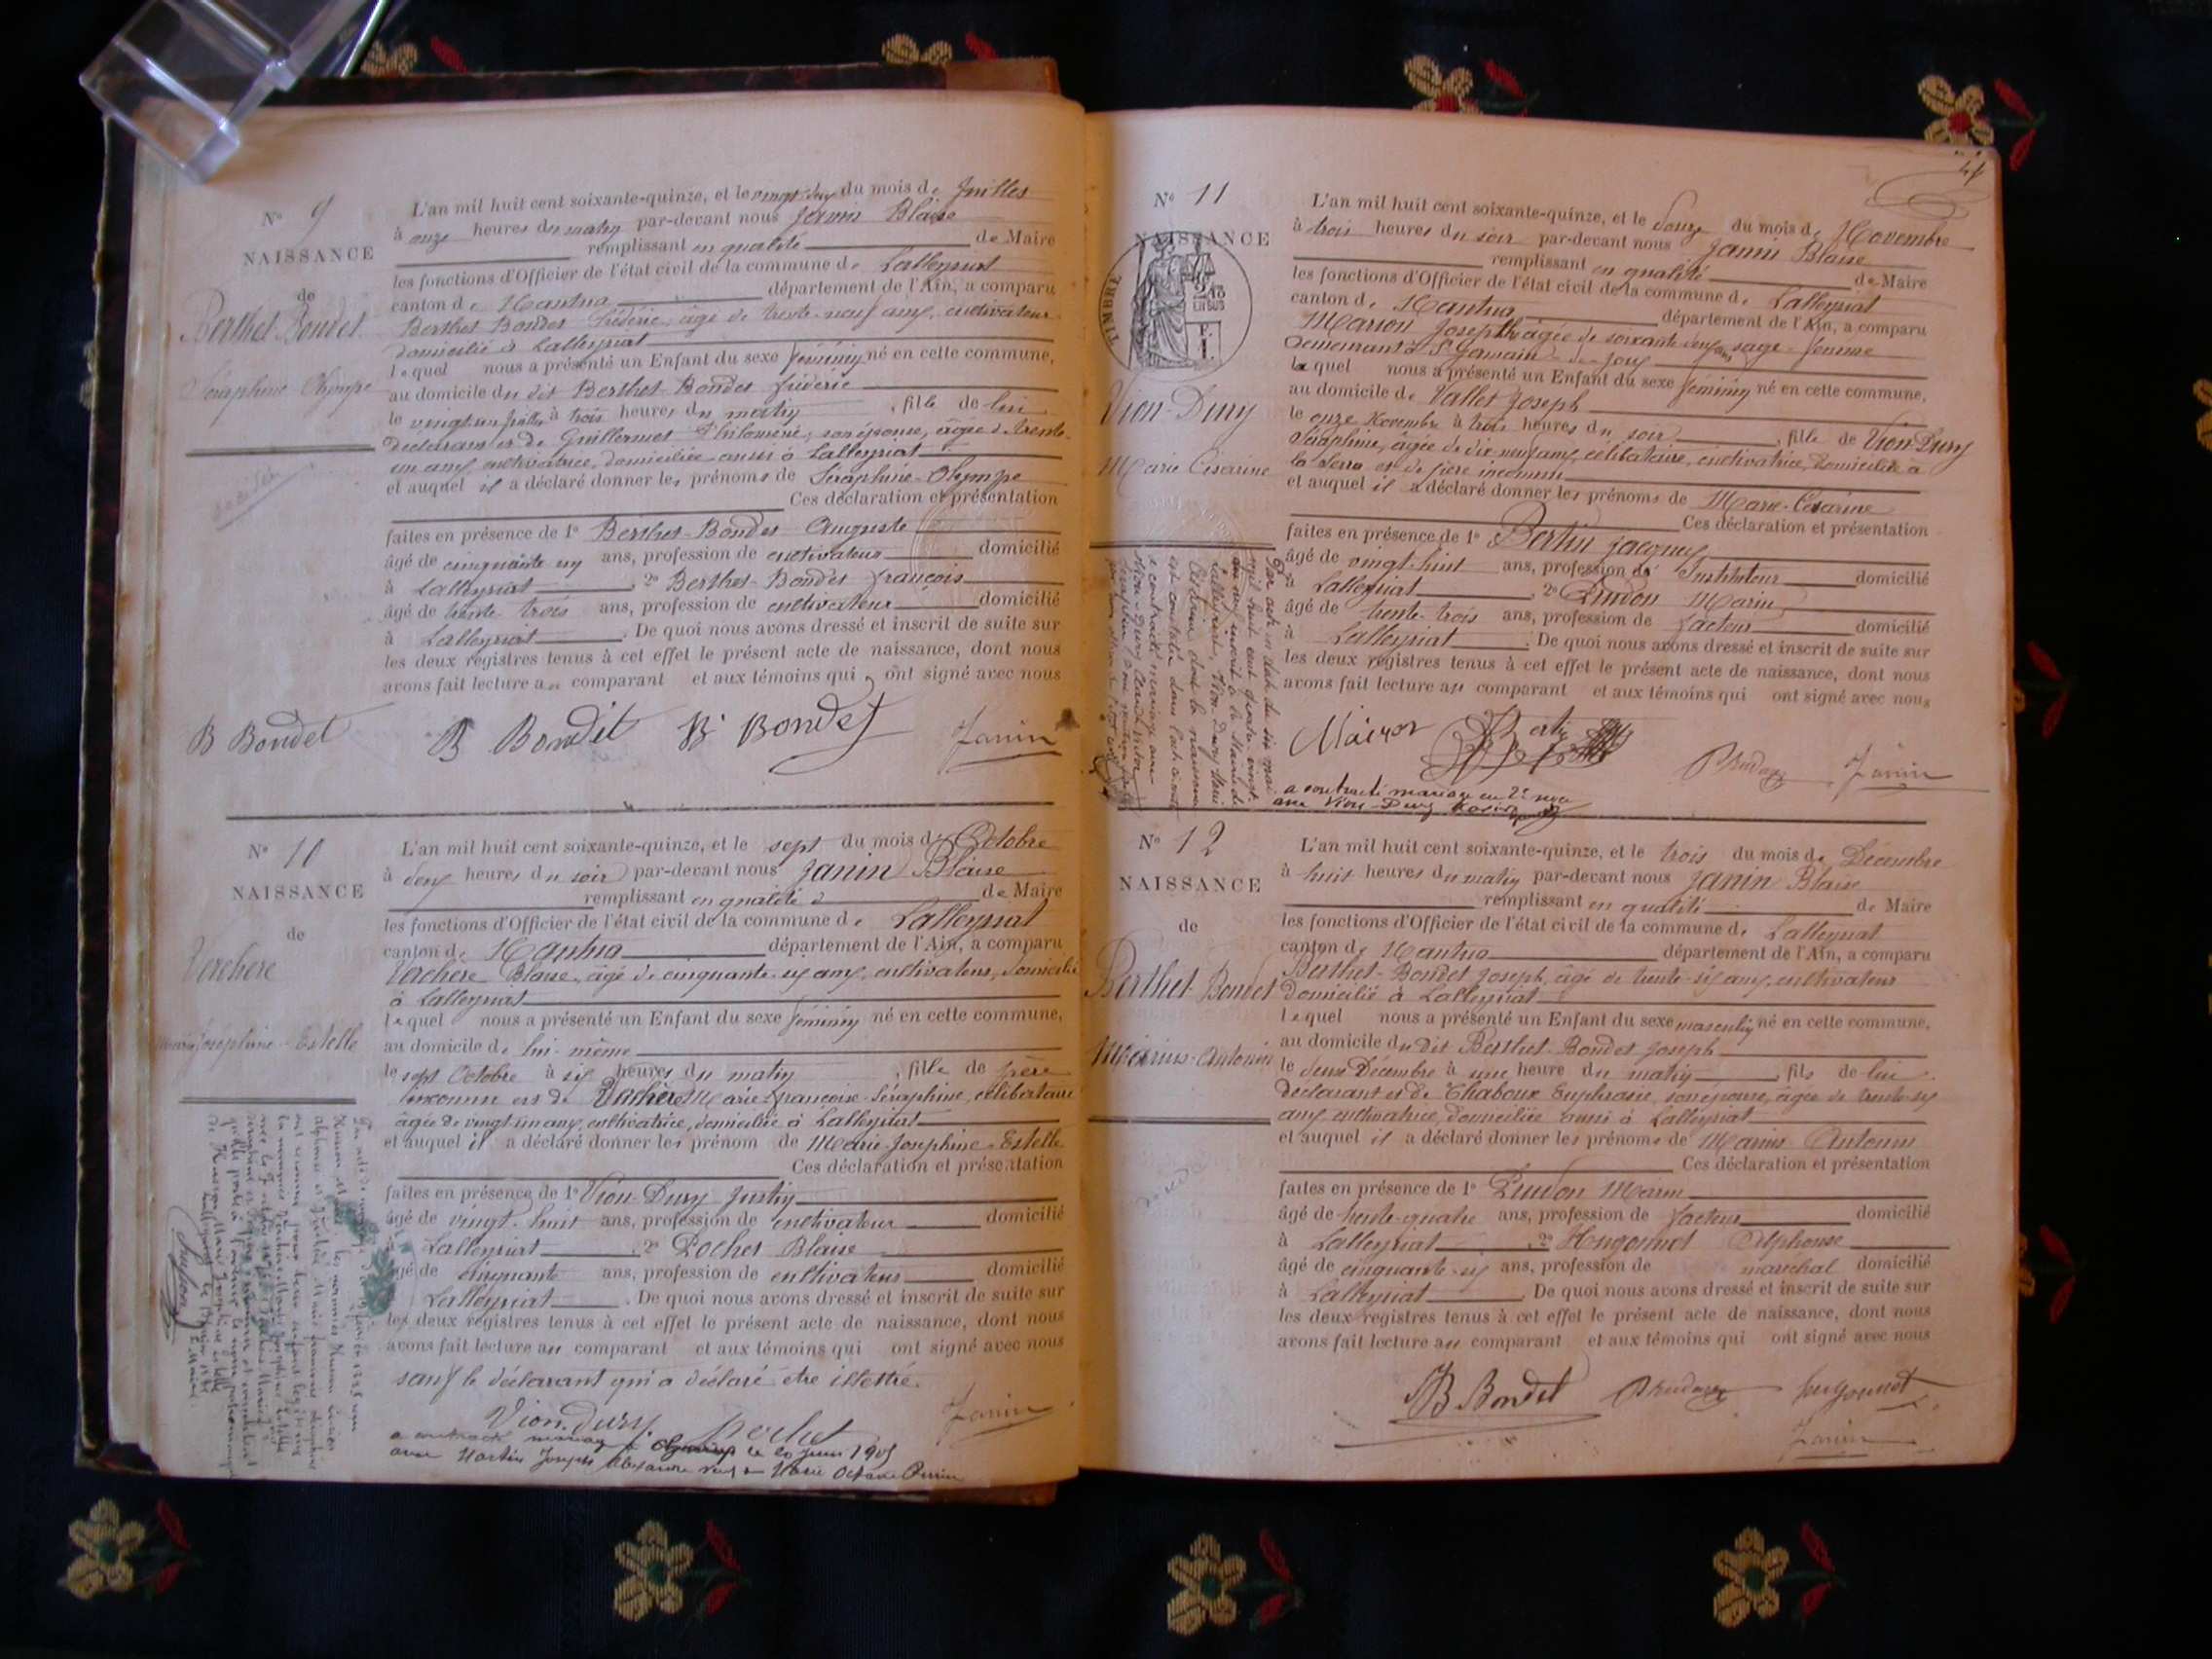 N° 9
NAISSANCE
de
Berthet-Bondet
Séraphine-Olympe
L'an mil huit cent soixante-quinze, et le vingt deux du mois de Juillet
à onze heures du matin par-devant nous Janin Blaise
remplissant en qualité de Maire
les fonctions d'Officier de l'état civil de la commune de Lalleyriat
canton de Nantua département de l'Ain, a comparu
Berthet-Bondet Frédéric, âgé de trente-neuf ans, cultivateur
domicilié à Lalleyriat
lequel nous a présenté un Enfant du sexe féminin né en cette commune,
au domicile du dit Berthet-Bondet Frédéric
le vingt un Juillet à trois heures du matin, fille de lui
déclarant et de Guillermet Philomène, son épouse, âgée de trente-
un ans, cultivatrice, domiciliée aussi à Lalleyriat
et auquel il a déclaré donner les prénoms de Séraphine-Olympe
Ces déclaration et présentation
faites en présence de 1° Berthet-Bondet Auguste
âgé de cinquante un ans, profession de cultivateur domicilié
à Lalleyriat, 2° Berthet-Bondet François
âgé de trente-trois ans, profession de cultivateur domicilié
à Lalleyriat. De quoi nous avons dressé et inscrit de suite sur
les deux registres tenus à cet effet le présent acte de naissance, dont nous
avons fait lecture au comparant et aux témoins qui ont signé avec nous
B Bondet B Bondet B Bondet Janin
N° 10
NAISSANCE
de
Verchère
Marie Joséphine-Estelle
L'an mil huit cent soixante-quinze, et le sept du mois d'Octobre
à deux heures du soir par-devant nous Janin Blaise
remplissant en qualité de Maire
les fonctions d'Officier de l'état civil de la commune de Lalleyriat
canton de Nantua département de l'Ain, a comparu
Verchère Blaise, âgé de cinquante-six ans, cultivateur, domicilié
à Lalleyriat
lequel nous a présenté un Enfant du sexe féminin né en cette commune,
au domicile de lui-même
le sept Octobre à six heures du matin, fille de père
inconnu et de Verchère Marie-Françoise-Séraphine, célibataire
âgée de vingt un ans, cultivatrice, domiciliée à Lalleyriat
et auquel il a déclaré donner les prénom de Marie-Joséphine-Estelle
Ces déclaration et présentation
faites en présence de 1° Vion-Dury Justin
âgé de vingt-huit ans, profession de cultivateur domicilié
à Lalleyriat, 2° Pochet Blaise
âgé de cinquante ans, profession de cultivateur domicilié
à Lalleyriat. De quoi nous avons dressé et inscrit de suite sur
les deux registres tenus à cet effet le présent acte de naissance, dont nous
avons fait lecture au comparant et aux témoins qui ont signé avec nous
sauf le déclarant qui a déclaré être illettré.
Vion Dury Pochet Janin
a contracté mariage à le 20 Juin 1905
avec Martin Joseph Alexandre veuf de Marie Octavie Perrin
N° 11
NAISSANCE
TIMBRE
Vion-Dury
Marie Césarine
L'an mil huit cent soixante-quinze, et le douze du mois de Novembre
à trois heures du soir par-devant nous Janin Blaise
remplissant en qualité de Maire
les fonctions d'Officier de l'état civil de la commune de Lalleyriat
canton de Nantua département de l'Ain, a comparu
Marion Josephte âgée de soixante deux ans sage-femme
demeurant à St Germain-de-Joux
laquel nous a présenté un Enfant du sexe féminin né en cette commune,
au domicile de Vallet Joseph
le onze Novembre à trois heures du soir, fille de Vion-Dury
Séraphine, âgée de dix neuf ans, célibataire, cultivatrice, domiciliée à
la Serra et de père inconnu
et auquel il a déclaré donner les prénoms de Marie-Césarine
Ces déclaration et présentation
faites en présence de 1° Bertin Jacques
âgé de vingt-huit ans, profession de Instituteur domicilié
à Lalleyriat, 2° Prudon Marin
âgé de trente-trois ans, profession de facteur domicilié
à Lalleyriat. De quoi nous avons dressé et inscrit de suite sur
les deux registres tenus à cet effet le présent acte de naissance, dont nous
avons fait lecture au comparant et aux témoins qui ont signé avec nous
Bertin Prudon Janin
a contracté mariage en 2e noce
avec Vion-Dury
N° 12
NAISSANCE
de
Berthet-Bondet
Marius-Antonin
L'an mil huit cent soixante-quinze, et le trois du mois de Décembre
à huit heures du matin par-devant nous Janin Blaise
remplissant en qualité de Maire
les fonctions d'Officier de l'état civil de la commune de Lalleyriat
canton de Nantua département de l'Ain, a comparu
Berthet-Bondet Joseph, âgé de trente-six ans, cultivateur
domicilié à Lalleyriat
lequel nous a présenté un Enfant du sexe masculin né en cette commune,
au domicile du dit Berthet-Bondet Joseph
le deux Décembre à une heure du matin, fils de lui
déclarant et de Chaboux Euphrasie, son épouse, âgée de trente-six
ans, cultivatrice, domiciliée aussi à Lalleyriat
et auquel il a déclaré donner les prénoms de Marius Antonin
Ces déclaration et présentation
faites en présence de 1° Prudon Marin
âgé de trente-quatre ans, profession de facteur domicilié
à Lalleyriat, 2° Hugonnet Alphonse
âgé de cinquante-six ans, profession de maréchal domicilié
à Lalleyriat. De quoi nous avons dressé et inscrit de suite sur
les deux registres tenus à cet effet le présent acte de naissance, dont nous
avons fait lecture au comparant et aux témoins qui ont signé avec nous
B Bondet Prudon hugonnet
Janin